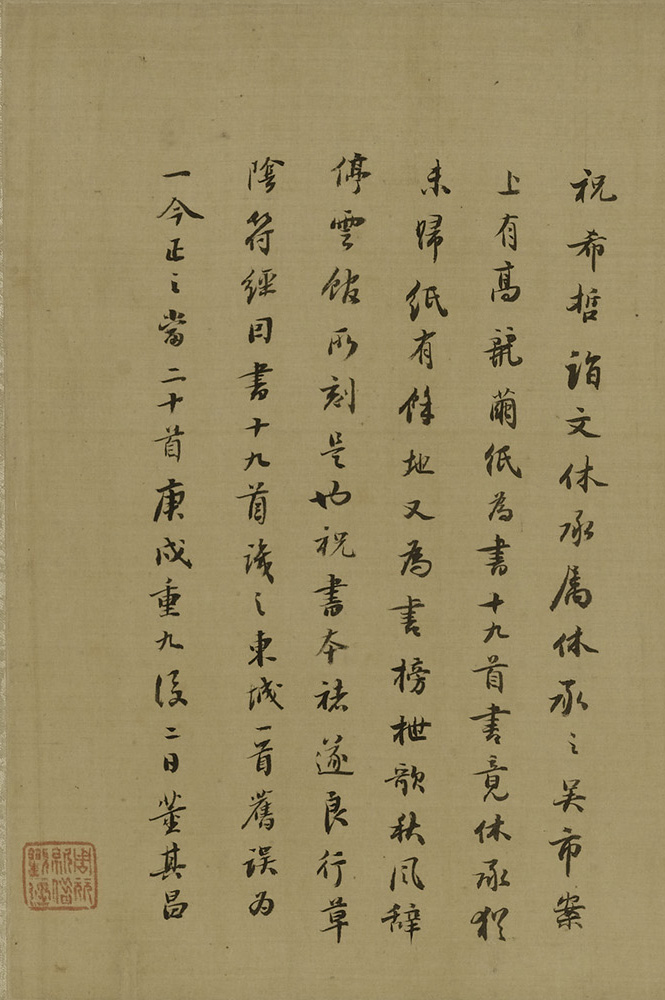 祝希哲詣文休承属休承之吴市案
上有高麗繭纸為書十九首書竟休承猶
未歸纸有餘地又為書榜枻歌秋风辞
停雲館所刻是也祝書本褚遂良行草
陰符經因書十九首識之東城一首舊误为
一今正之當二十首庚戌重九後二日董其昌